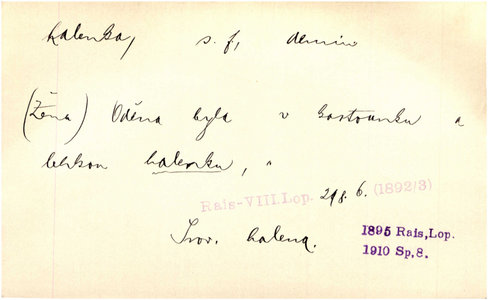 halenka, s. f., demin
(Žena) Oděna byla v kartounku a
lehkou halenku, "
Rais-VIII.Lop. 298. 6. (1892/3)
Srov. halena.
1895 Rais,Lop.
1910 Sp.8.